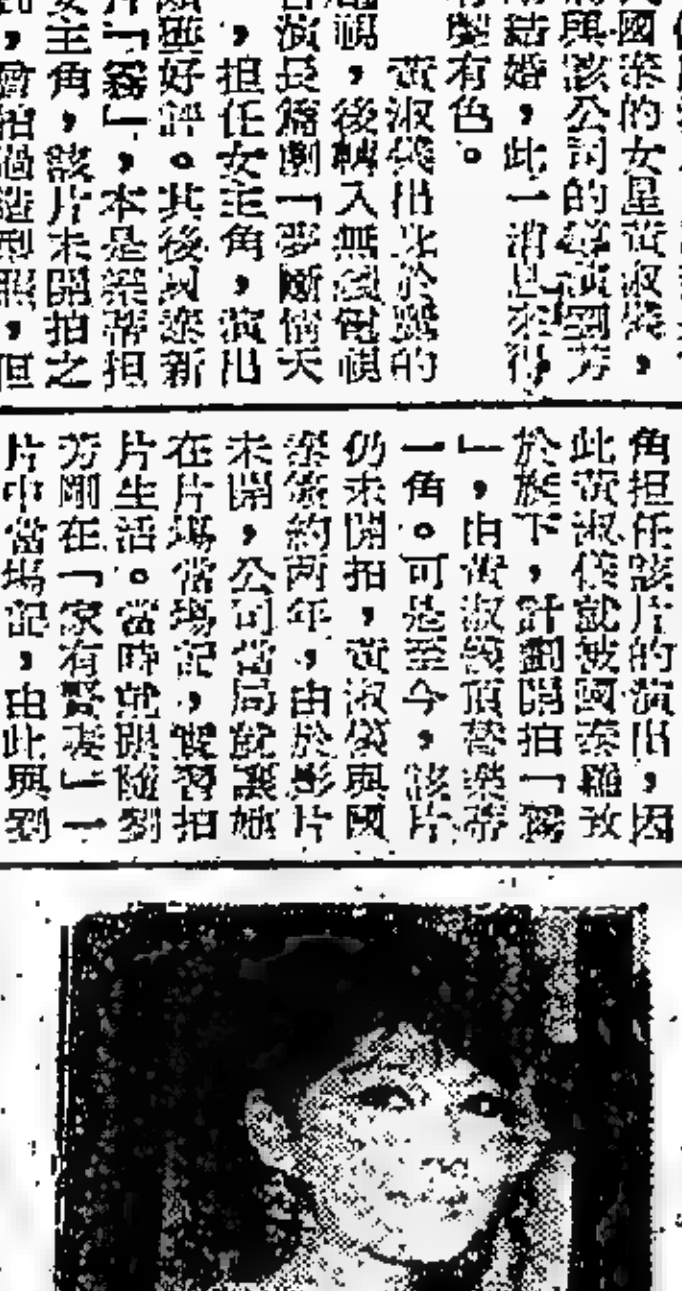 國泰的女星黃淑儀，
與該公司的導演劉芳
結婚，此一消息來得
有聲有色。
黃淑儀出身於麗的
視，後轉入無線電視
演長篇劇「夢斷情天
，担任女主角，演出
頗獲好評。其後國泰新
片「霧」，本是樂蒂担
女主角，該片未開拍之
，曾拍過造型照，但
角担任該片的演出，因
此黃淑儀就被國泰羅致
於旗下，計劃開拍「霧
」，由黃淑儀頂替樂蒂
一角。可是至今，該片
仍未開拍，黃淑儀與國
泰簽約两年，由於影片
未開，公司當局就讓她
在片場當場記，實習拍
片生活。當時就跟隨劉
芳剛在「家有賢妻」一
片中當場記，由此與劉